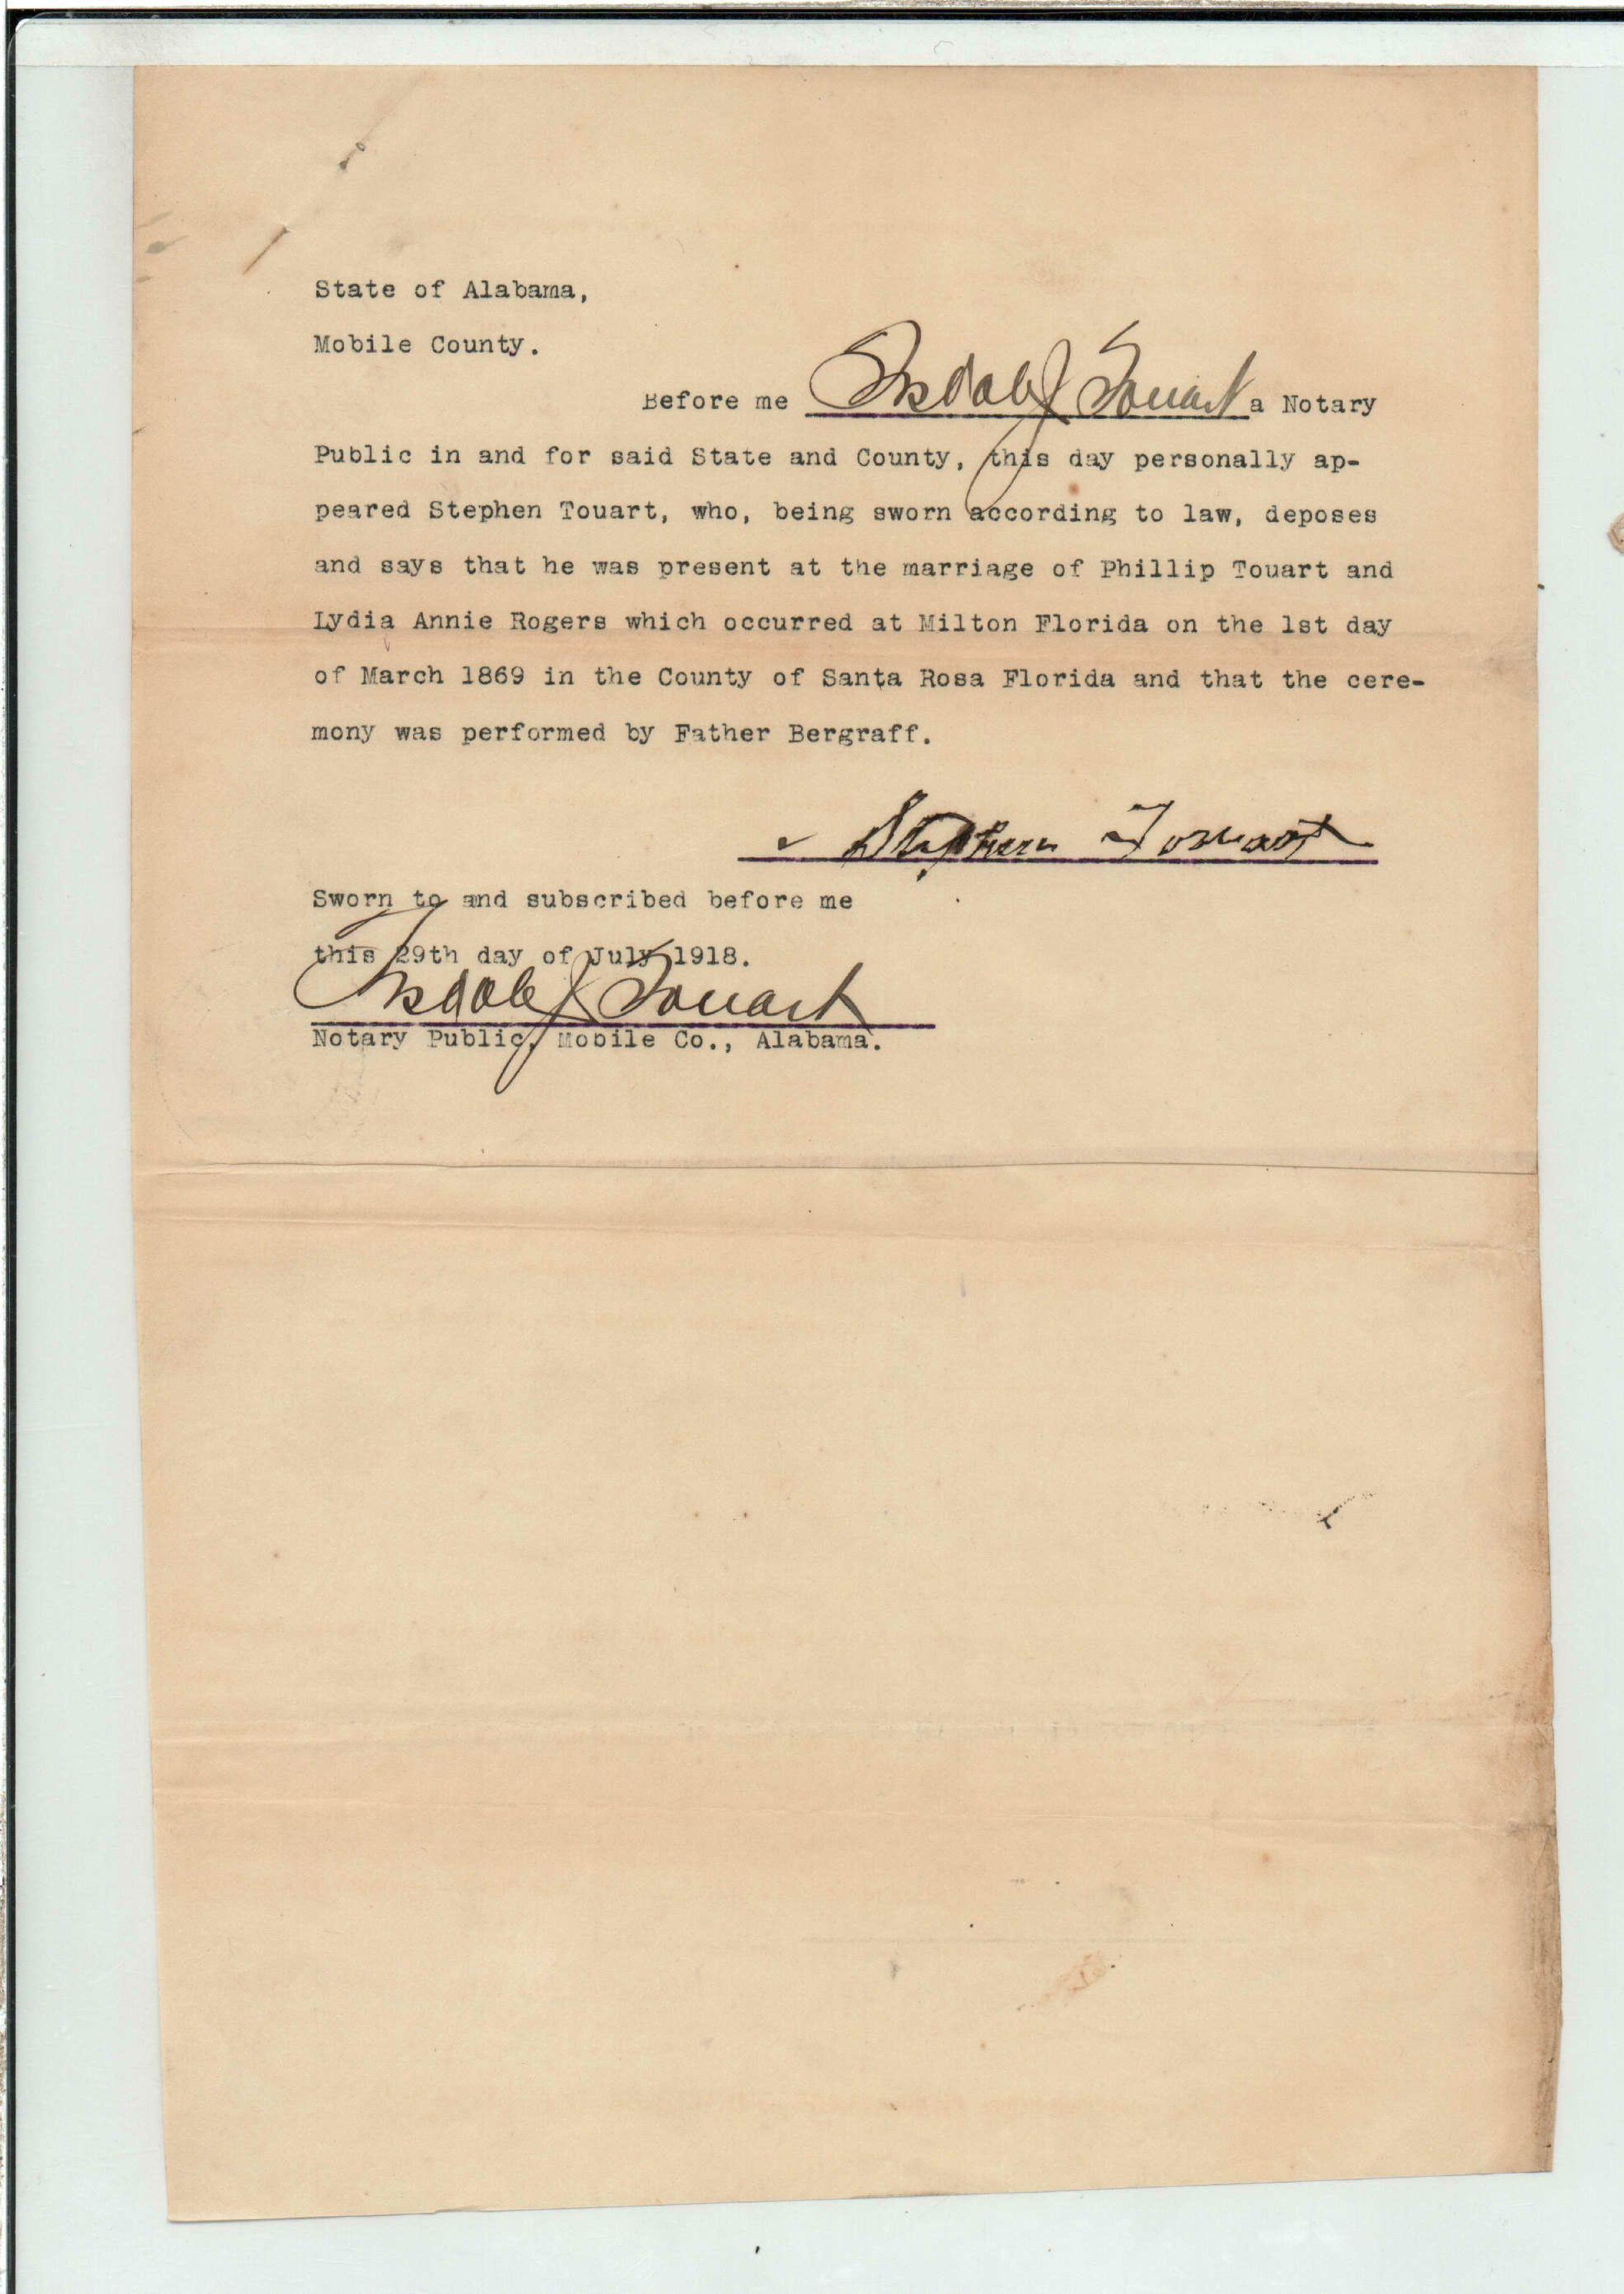 State of Alabama,
Mobile County.
Before me Touart a Notary
Public in and for said State and County, this day personally ap-
peared Stephen Touart, who, being sworn according to law, deposes
and says that he was present at the marriage of Phillip Touart and
Lydia Annie Rogers which occurred at Milton Florida on the 1st day
of March 1869 in the County of Santa Rosa Florida and that the cere-
mony was performed by Father Bergraff.
Stephen Touart
Sworn to and subscribed before me
this 29th day of July 1918.
Touart
Notary Public, Mobile Co., Alabama.